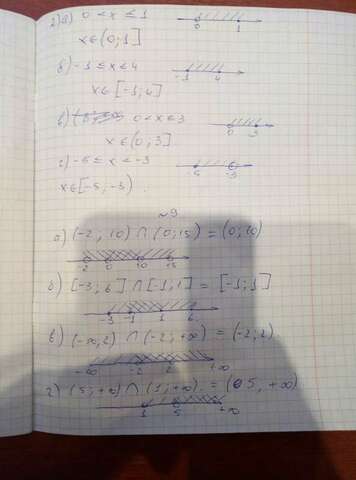 2) а) 0 < x ≤ 1
0 1
x ∈ (0; 1]
б) -1 ≤ x ≤ 4
-1 4
x ∈ [-1; 4]
в) 0 < x ≤ 3
0 3
x ∈ (0; 3]
г) -5 ≤ x < -3
-5 -3
x ∈ [-5; -3)
~ 9
а) (-2; 10) ∩ (0; 15) = (0; 10)
-2 0 10 15
б) [-3; 6] ∩ [-1; 1] = [-1; 1]
-3 -1 1 6
в) (-∞; 2) ∩ (-2; +∞) = (-2; 2)
-∞ -2 2 +∞
г) (5; +∞) ∩ (1; +∞) = (5, +∞)
1 5 +∞